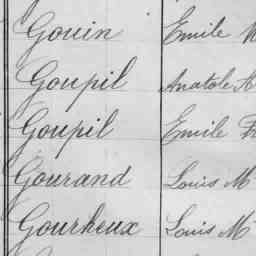 Gouin Emile
Goupil Anatole A
Goupil Emile
Gourand Louis M
Gourheux Louis M